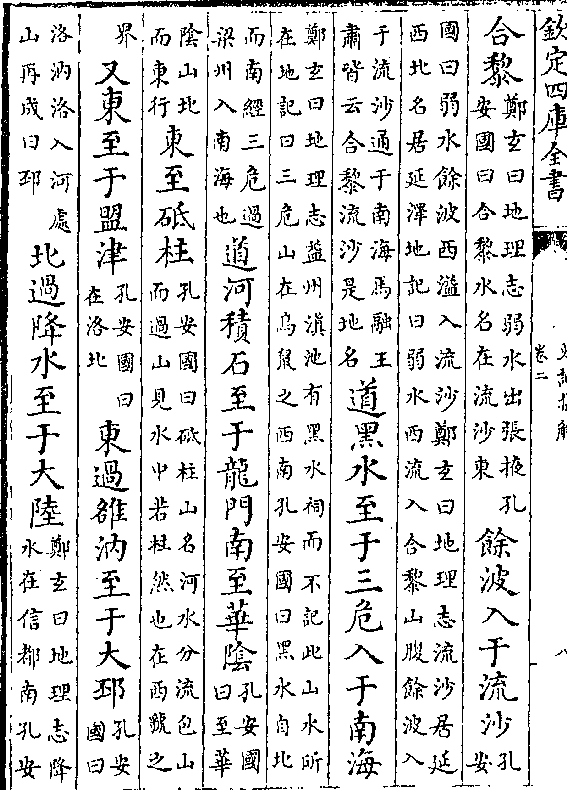 欽定四庫全書
史記集解
卷二
八
合黎
鄭玄曰地理志弱水出張掖孔
安國曰合黎水名在流沙東
餘波入于流沙
孔
安
國曰弱水餘波西溢入流沙鄭玄曰地理志流沙居延
西北名居延澤地記曰弱水西流入合黎山腹餘波入
于流沙通于南海馬融王
肅皆云合黎流沙是地名
道黑水至于三危入于南海
鄭玄曰地理志益州滇池有黑水祠而不記此山水所
在地記曰三危山在鳥鼠之西南孔安國曰黑水自北
而南經三危過
梁州入南海也
道河積石至于龍門南至華陰
孔安國
曰至華
陰山北
而東行
東至砥柱
孔安國曰砥柱山名河水分流包山
而過山見水中若柱然也在西虢之
界
又東至于盟津
孔安國曰
在洛北
東過雒汭至于大邳
孔安
國曰
洛汭洛入河處
山再成曰邳
北過降水至于大陸
鄭玄曰地理志降
水在信都南孔安